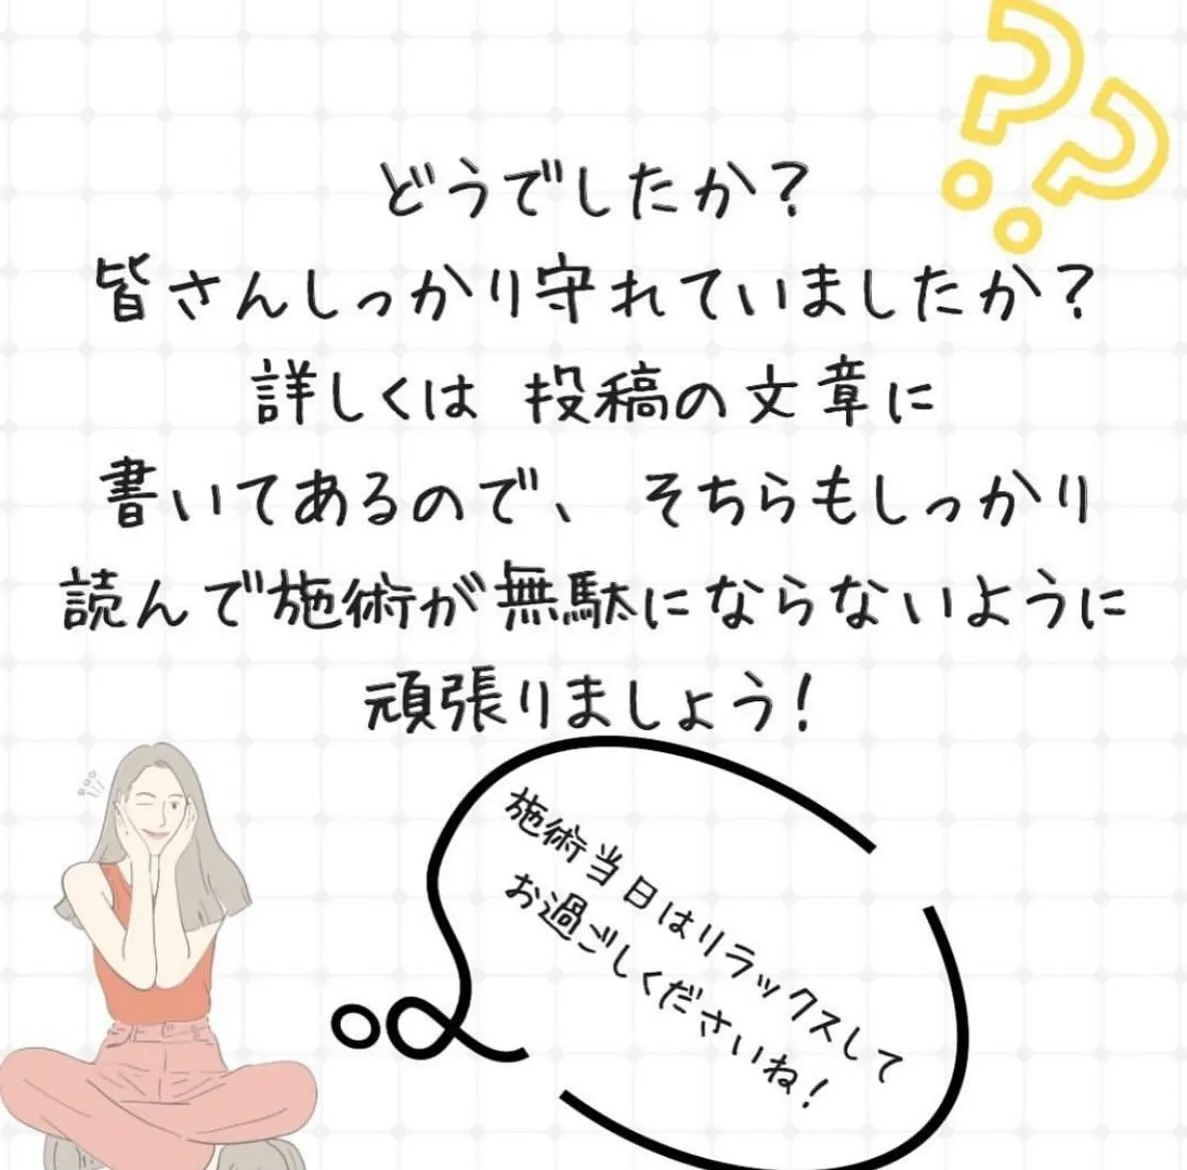 どうでしたか？
皆さんしっかり守れていましたか？
詳しくは 投稿の文章に
書いてあるので、 そちらもしっかり
読んで施術が無駄にならないように
頑張りましょう！
施術当日はリラックスして
お過ごしくださいね！
??